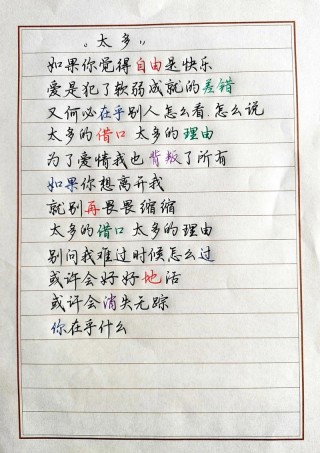 。太多〃
如果你觉得自由是快乐
爱是犯了软弱成就的差错
又何必在乎别人怎么看.怎么说
太多的借口 太多的理由
为了爱情我也背叛了所有
如果你想离开我
就别再畏畏缩缩
太多的借口 太多的理由
别问我难过时候怎么过
或许会好好地活
或许会消失无踪
你在乎什么